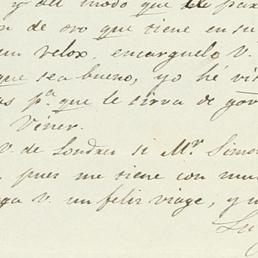 y del modo que le par
n de oro que tiene en su
un relox, encarguelo V.
que sea bueno, yo hé vis
as p.ª que le sirva de gov
Viner.
V. de Londres si M.r Simo
pues me tiene con mu
ga V. un feliz viage, y
Su